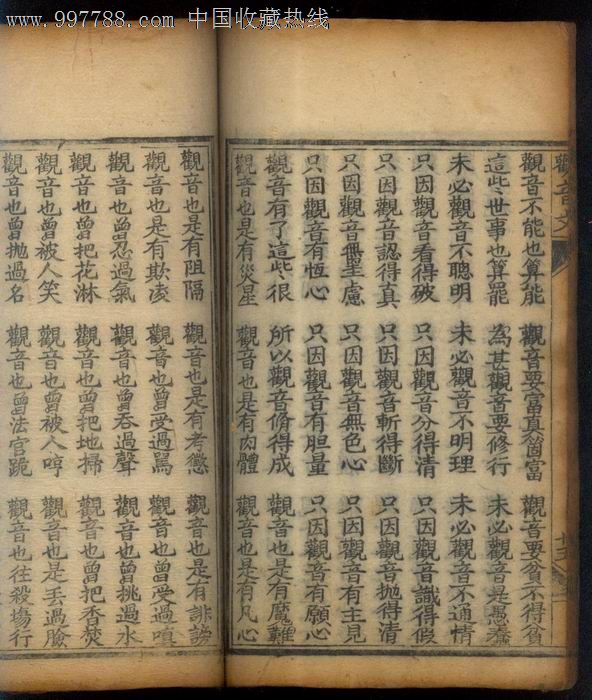 www.997788.com 中国收藏热线
觀音文
十五
觀音不能也算能 觀音要富真箇富 觀音要貧不得貧
這些世事也算罷 為甚觀音要修行 未必觀音是愚蠢
未必觀音不聰明 未必觀音不明理 未必觀音不通情
只因觀音看得破 只因觀音分得清 只因觀音識得假
只因觀音認得真 只因觀音斬得斷 只因觀音拋得清
只因觀音無罣慮 只因觀音無色心 只因觀音有主見
只因觀音有恆心 只因觀音有胆量 只因觀音有願心
觀音有了這些很 所以觀音脩得成 觀音也是有魔難
觀音也是有災星 觀音也是有肉體 觀音也是有凡心
觀音也是有阻隔 觀音也是有考懲 觀音也是有誹謗
觀音也是有欺凌 觀音也曾受過罵 觀音也曾受過嗔
觀音也曾忍過氣 觀音也曾吞過聲 觀音也曾挑過水
觀音也曾把花淋 觀音也曾把地掃 觀音也曾把香焚
觀音也曾被人笑 觀音也曾被人哼 觀音也是丟過臉
觀音也曾拋過名 觀音也曾法官跪 觀音也往殺塲行